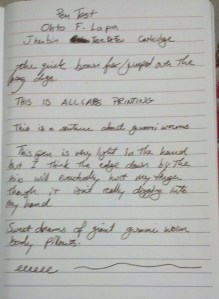 Pen Test
Otto F. Lapa
J herbin Cartridge
the quick brown fox jumped over the
lazy dogs
THIS IS ALL CAPS PRINTING
This is a sentence about gummi worms
This pen is very light in the hand
but I think the edge down by the
nib will eventually hurt my finger
though it isn't really digging into
my hand
Sweet dreams of giant gummi worm
body pillows.
eeeeee